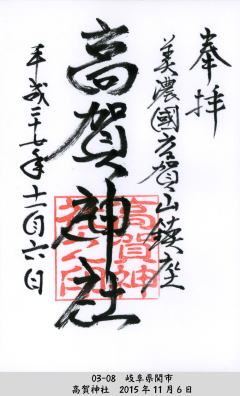 奉拝
美濃國高賀山鎮座
高賀神社
平成二十七年十一月六日
高賀神
社之印
03-08 岐阜県関市
高賀神社 2015年11月6日